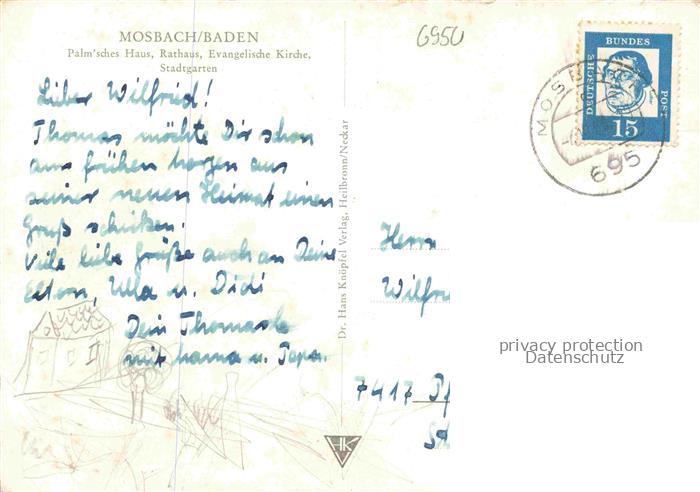 MOSBACH/BADEN
Palm'sches Haus, Rathaus, Evangelische Kirche,
Stadtgarten
6950
Lieber Wilfried!
Thomas möchte Dir schon
am frühen morgen aus
seiner neuen Heimat einen
Gruß schicken.
Viele liebe Grüße auch an Deine
Eltern, Ulla u. Didi
Dein Thomasle
mit mama u. Papa.
Dr. Hans Knöpfel Verlag, Heilbronn/Neckar
HK
V
DEUTSCHE
BUNDES
POST
15
MOSB
695
Herrn
Wilfri
7417 Pf
privacy protection
Datenschutz